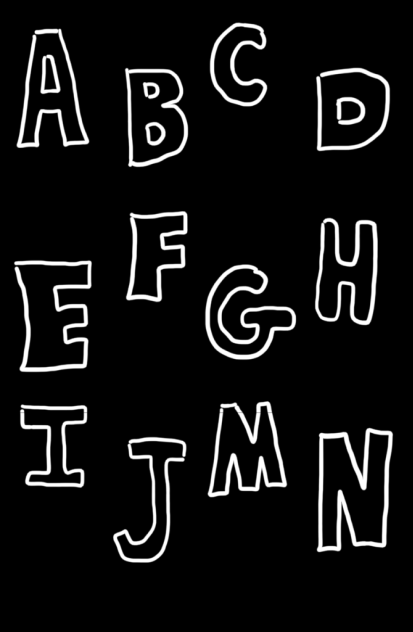 A B C D
E F G H
I J M N